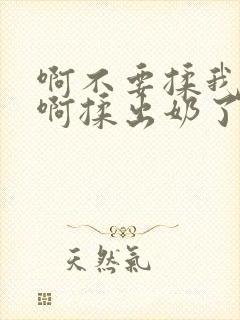 啊不要揉我
啊揉出奶了
天然氣